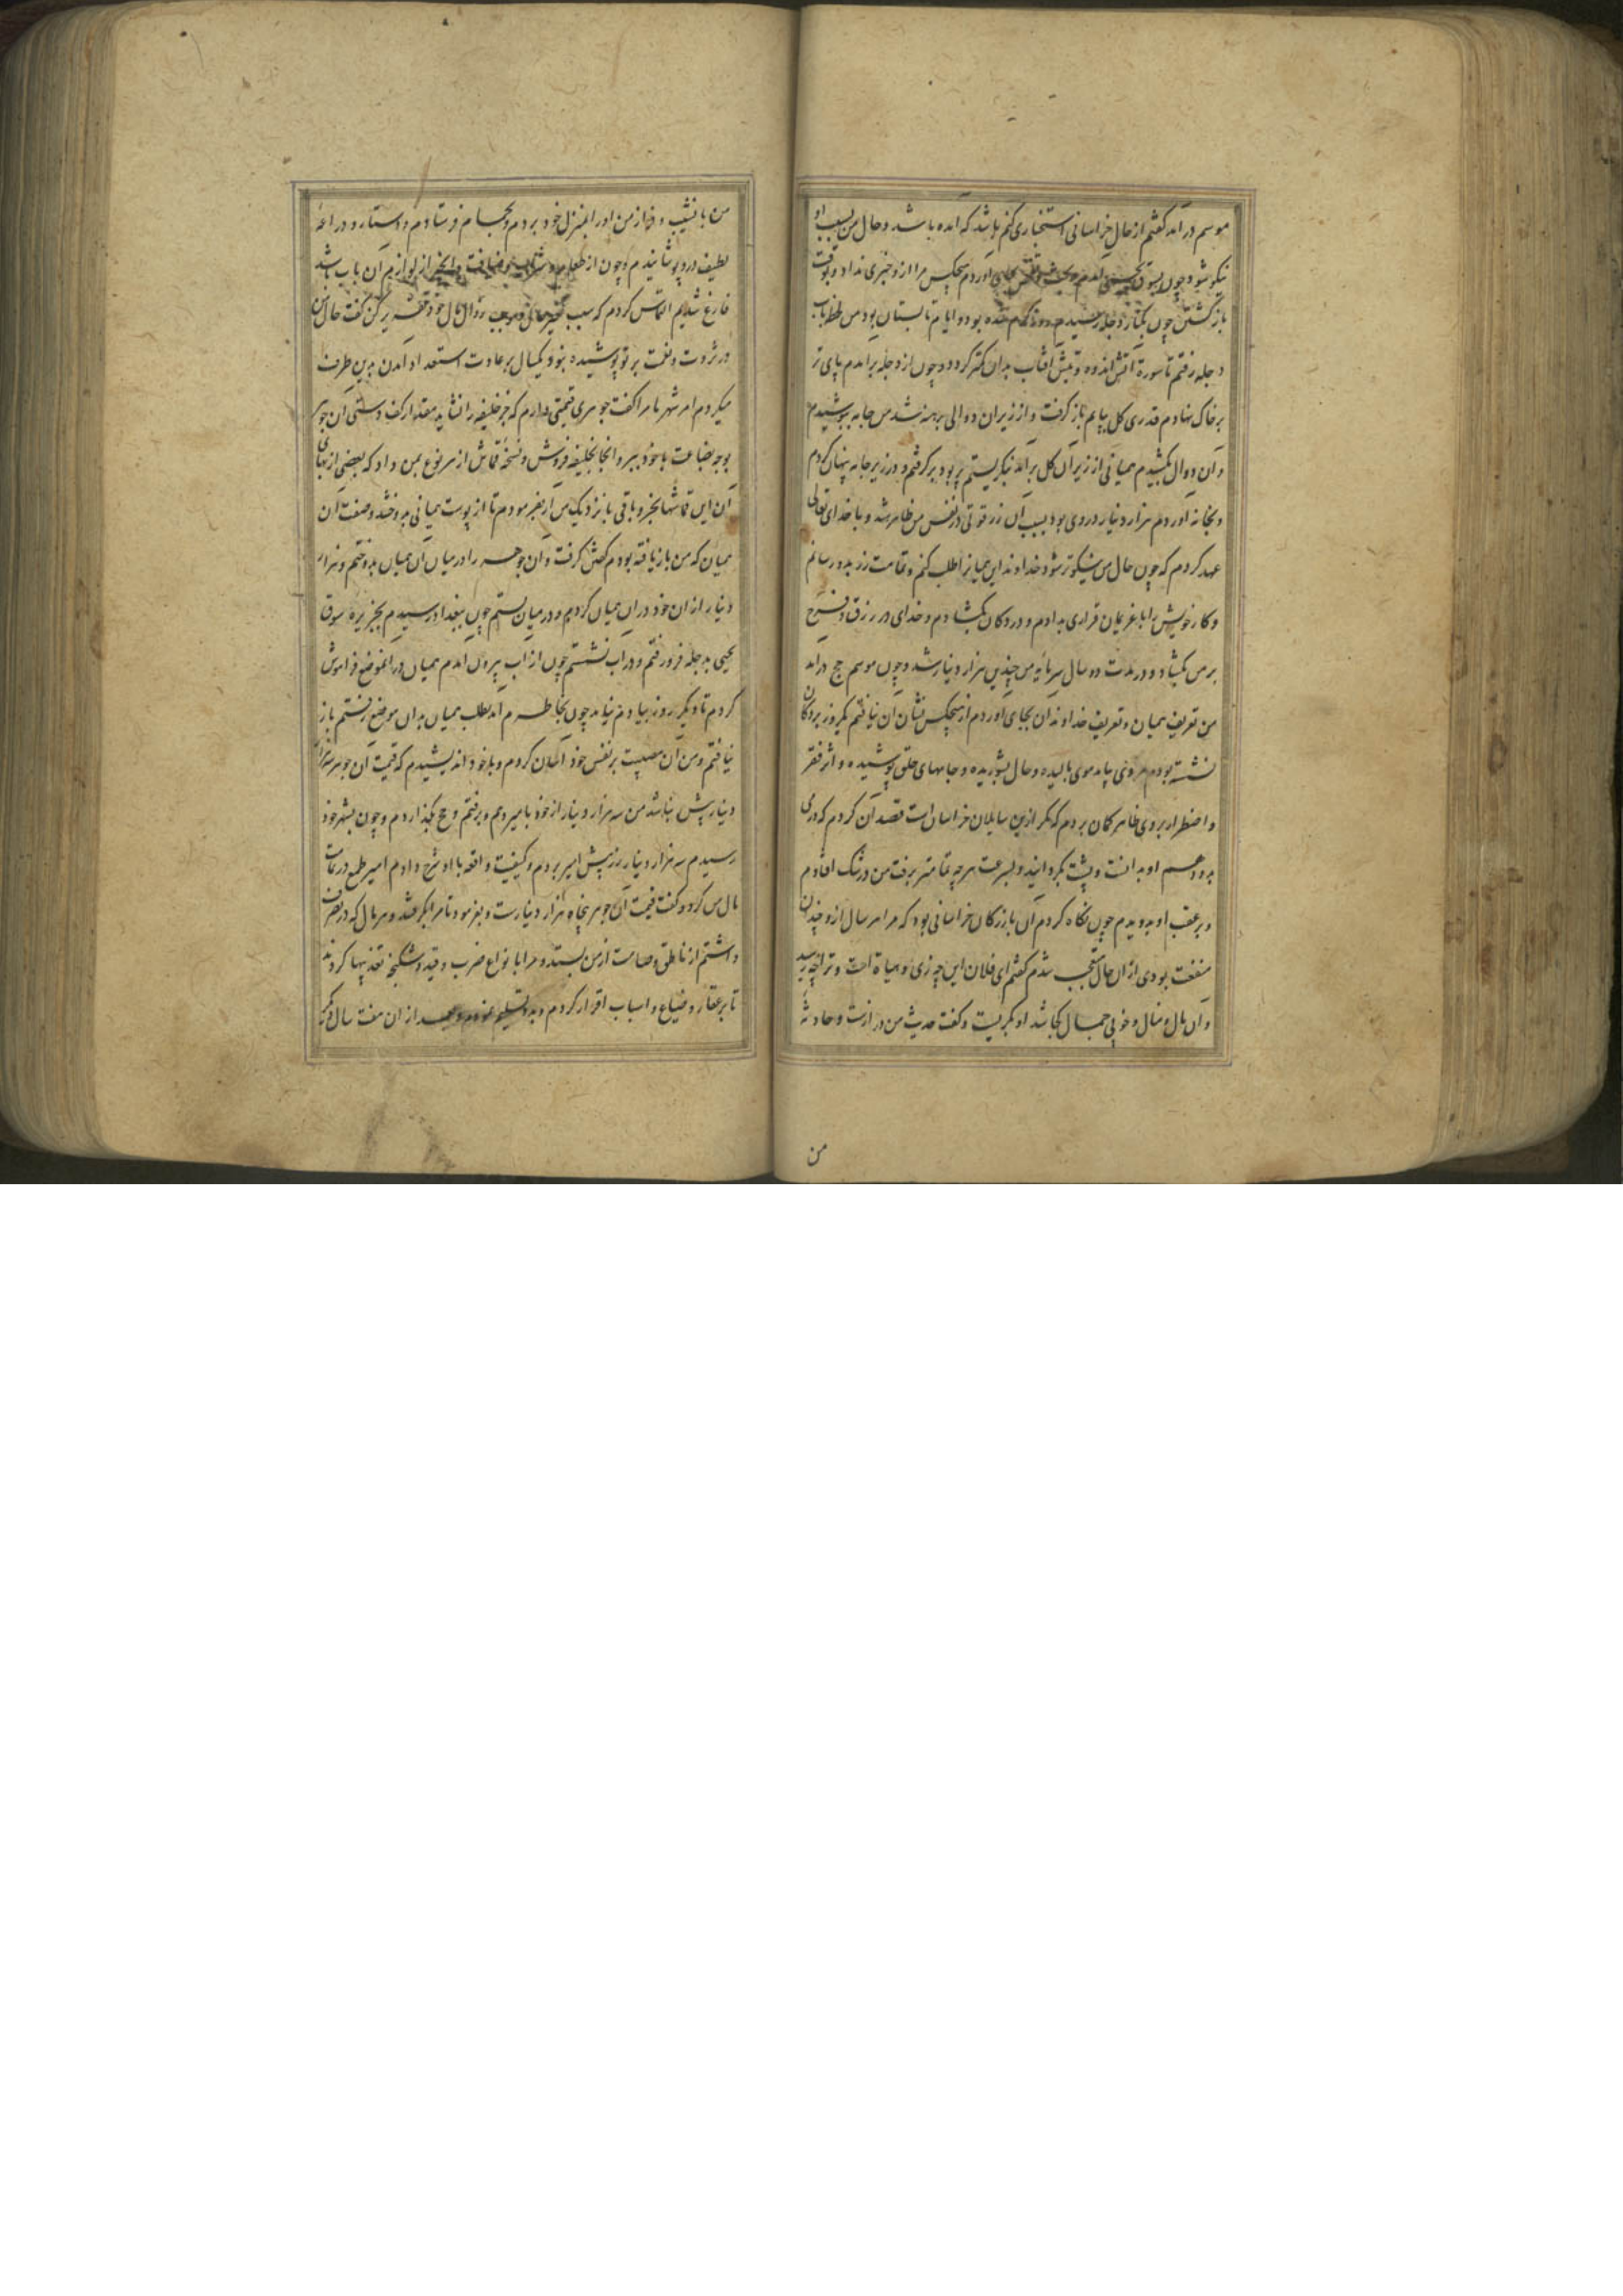 موسم درآمد گفتم از حال خراسانی استخباری کنم باشد که آمده باشد و حال من بسبب او
نیکو شود چون بسوق یحیی آمدم و بحث و تفتیش بجای آوردم هیچکس مرا ازو خبری نداد و بوقت
باز گشتن چون بکنار دجله رسیدم و ایام تابستان بود من لحظه بآب
دجله رفتم تا سورة آتش اندوه و تبش آفتاب بدان کمتر گردد و چون از دجله برآمدم پای تر
بر خاک نهادم قدری گل بپایم باز گرفت و از زیر آن دوالی برهنه شد من جامه بپوشیدم
و آن دوال بکشیدم همیانی از زیر آن گل برآمد بنگریستم پر بود برگرفتم و در زیر جامه پنهان کردم
و بخانه آوردم هزار دینار دروی بود بسبب آن زر قوتی در نفس من ظاهر شد و با خدای تعالی
عهد کردم که چون حال من نیکوتر شود خداوند این همیانرا طلب کنم و تمامت زر بدو رسانم
و کار خویش را با غریمان قراری بدادم و در دکان بگشادم و خدای در رزق و فرح
بر من بگشاد و در مدت دو سال سرمایه من چندین هزار دینار شد و چون موسم حج درآمد
من تعریف همیان و تعریف خداوند آن بجای آوردم از هیچکس نشان آن نیافتم یکروز بر دکان
نشسته بودم مردی بیامد موی بالیده و حال بشوریده و جامهای خلق پوشیده و اثر فقر
و اضطرار بر وی ظاهر گمان بردم که مگر ازین سایلان خراسان است قصد آن کردم که درمی
بدو دهم او بدانست و پشت بگردانید و بسرعت هرچه تمامتر برفت من در شک افتادم
و بر عقب او بدویدم چون نگاه کردم آن بازرگان خراسانی بود که مرا هر سال ازو چندان
منفعت بودی از آن حال متعجب شدم گفتم ای فلان این چه زی و هیأة است و ترا چه رسید
و آن مال و منال و خوبی جمال کجا شد او بگریست و گفت حدیث من درازست و حادثۀ
من
من با نشیب و فراز من او را بمنزل خود بردم و بحمام فرستادم و دستار و دراعۀ
لطیف درو پوشانیدم و چون از طعام و شراب و ضیافت و آنچه از لوازم آن باب باشد
فارغ شدیم التماس کردم که سبب تغیر حال و موجب زوال مال خود تقریر کن گفت حال من
در ثروت و نعمت بر تو پوشیده نبود یکسال بر عادت استعداد آمدن بدین طرف
میکردم امیر شهر ما مرا گفت جوهری قیمتی دارم که جز خلیفه را نشاید مقدار کف دستی آن جوهر
بوجه بضاعت با خود ببر و آنجا بخلیفه فروش و نسخۀ قماش از هر نوع بمن داد که بعضی از بهای
آن این قماشها بخر و باقی با نزدیک من آر بفرمودم تا از پوست همیانی بدوختند و صفت آن
همیان که من باز یافته بودم گفتن گرفت و آن جوهر را در میان آن همیان بدوختم و هزار
دینار از آن خود در آن همیان کردم و در میان بستم چون ببغداد رسیدم بجزیره سوق
یحیی بدجله فرو رفتم و در آب نشستم چون از آب بیرون آمدم همیان در آنموضع فراموش
کردم تا دیگر روز بیادم نیامد چون بخاطرم آمد بطلب همیان بدان موضع رفتم باز
نیافتم و من آن مصیبت بر نفس خود آسان کردم و با خود اندیشیدم که قیمت آن جوهر سه هزار
دینار بیش نباشد من سه هزار دینار از خود بامیر دهم و برفتم و حج بگذاردم و چون بشهر خود
رسیدم سه هزار دینار زر پیش امیر بردم و کیفیت واقعه با او شرح دادم امیر طمع در تمامت
مال من کرد و گفت قیمت آن جوهر پنجاه هزار دینارست و بفرمود تا مرا بگرفتند و هر مال که در تصرف
داشتم از ناطق و صامت از من بستد و مرا بانواع ضرب و قید و شکنجه تعذیبها کردند
تا بر عقار و ضیاع و اسباب اقرار کردم و بدو تسلیم نمودم و بعد از آن هفت سال دیگر